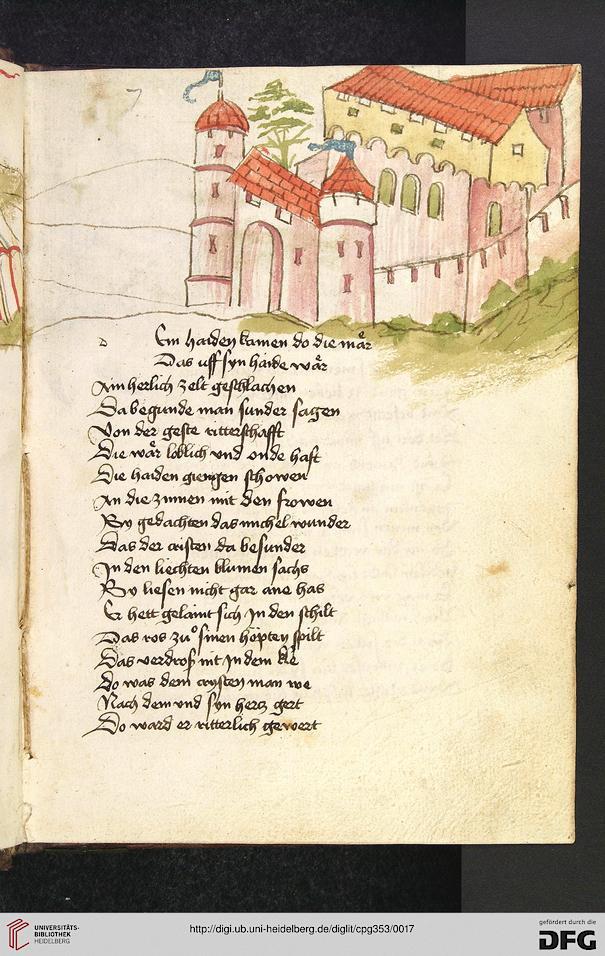 Em haiden kamen do die mår
Das uff syn haide wår
Ain herlich zelt geschlachen
Da begunde man sunder sagen
Von der geste ritterschafft
Die wår loblich und ende haft
Die haiden giengen schowen
An die zinnen mit den frowen
Sy gedachten das michel wunder
Das der cristen da besunder
In den liechten blumen sachs
Sy liesen nicht gar ane has
Er hett gelaint sich In den schilt
Das ros zuͦ sinen höpten spilt
Das verdroß nit In dem kle
Do was dem crysten man we
Nach dem und syn hertz gert
Do ward er ritterlich gewert
UNIVERSITÄTS-
BIBLIOTHEK
HEIDELBERG
http://digi.ub.uni-heidelberg.de/diglit/cpg353/0017
gefördert durch die
DFG